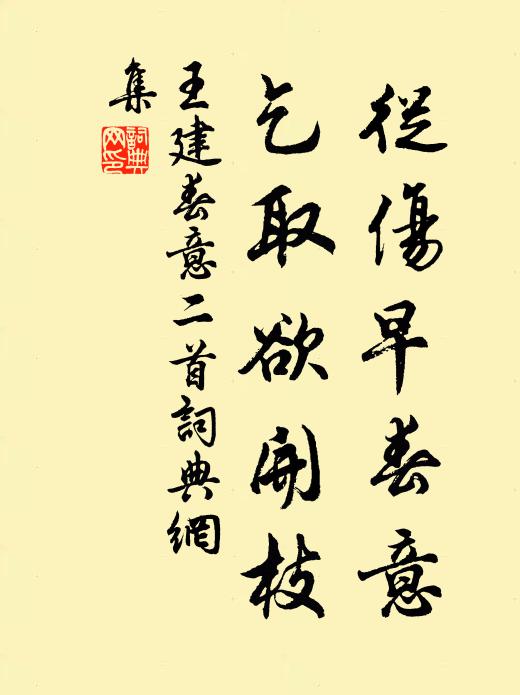 從傷早春意
乞取欲開枝
王建春意二首詞典網
集
詞典網印